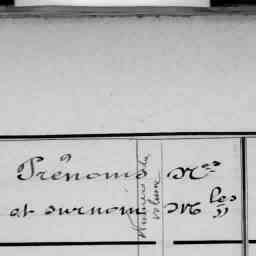 Prénoms
et surnoms
Numéros du
volume
Nos